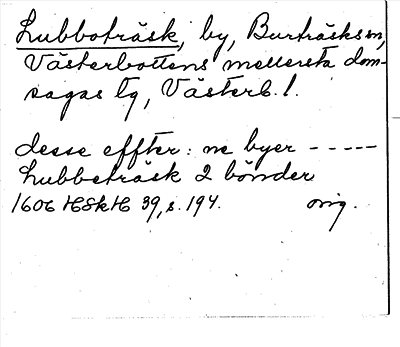 Lubboträsk, by, Burträsks sn,
Västerbottens mellersta dom-
sagas tg, Västerb. l.
desse effter: ne byer - - - - -
Lubbeträsk 2 bönder
1606 HSkH 39, s. 194. orig.